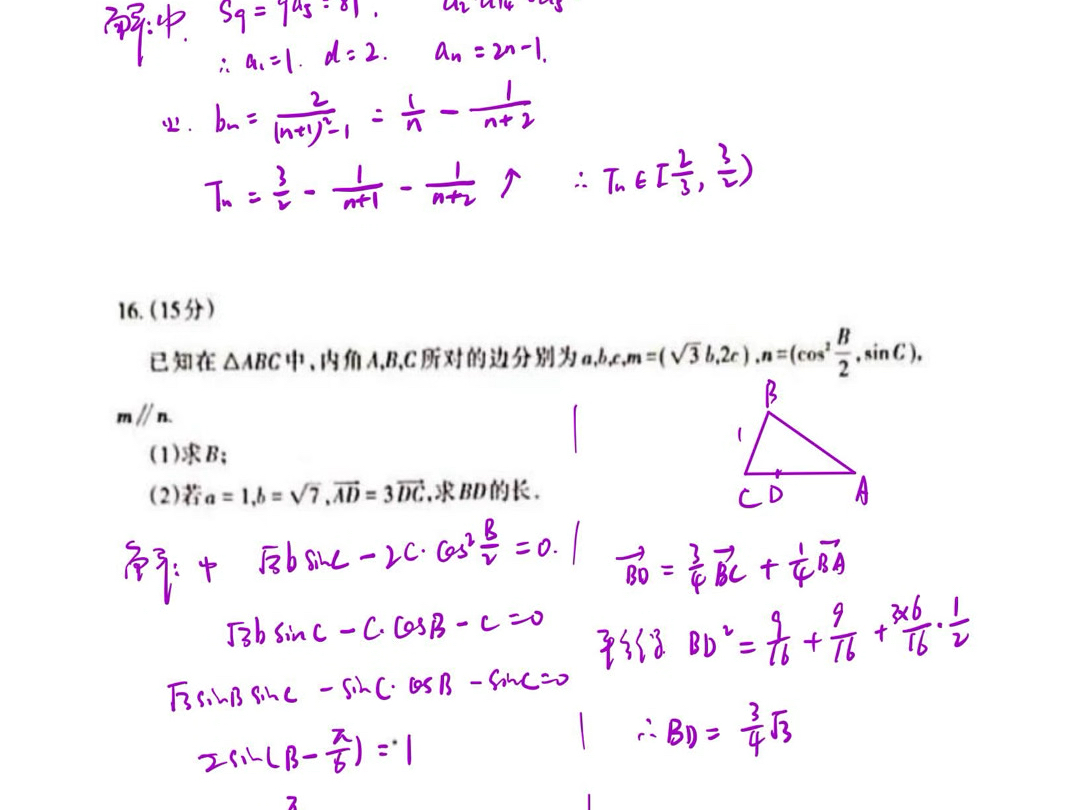 解:(1). S₉ = 9a₅ = 81.
∴ a₁=1. d=2. aₙ = 2n-1.
(2). bₙ = 2/((n+1)²-1) = 1/n - 1/(n+2)
Tₙ = 3/2 - 1/(n+1) - 1/(n+2) ↑ ∴ Tₙ ∈ [2/3, 3/2)
16.(15分)
已知在△ABC中,内角A,B,C所对的边分别为a,b,c,m=(√3b,2c),n=(cos²B/2,sinC),
m∥n.
(1)求B;
(2)若a=1,b=√7,AD=3DC,求BD的长.
B
1
C D A
解:(1) √3b sinC - 2c·cos²B/2 = 0.
√3b sinC - c·cosB - c = 0
√3sinB sinC - sinC·cosB - sinC=0
2sin(B-π/6) = 1
BD = 3/4BC + 1/4BA
平方得 BD² = 9/16 + 9/16 + 3×6/16·1/2
∴BD = 3/4√3